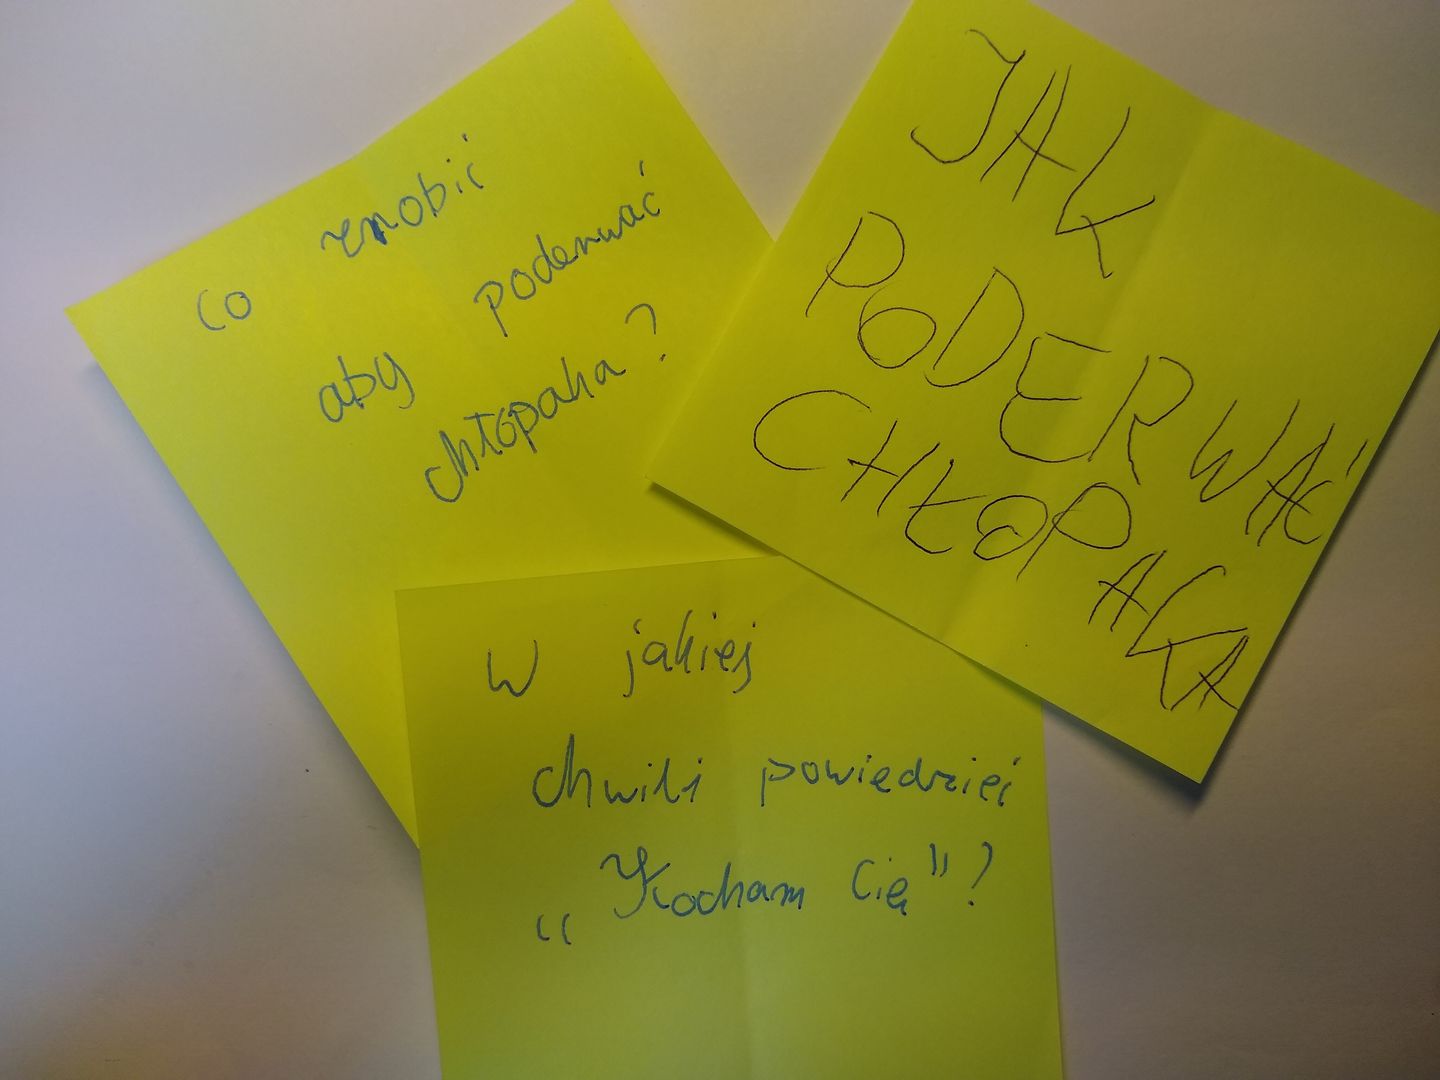 co zrobić
aby poderwać
chłopaka?
JAK
PODERWAĆ
CHŁOPAKA
W jakiej
chwili powiedzieć
„Kocham Cię"?